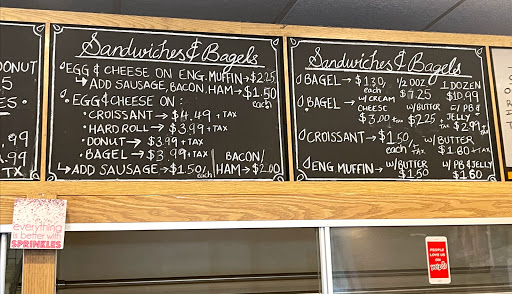 DONUT
5
ES.
.99
.99
TX
Sandwiches & Bagels
EGG & CHEESE ON ENG. MUFFIN → $2.25
↳ ADD SAUSAGE, BACON, HAM → $1.50 each
EGG & CHEESE ON :
• CROISSANT → $4.49 + TAX
• HARD ROLL → $3.99 + TAX
• DONUT → $3.99 + TAX
• BAGEL → $3.99 + TAX
↳ ADD SAUSAGE → $1.50/each
BACON/
HAM → $2.00
Sandwiches & Bagels
BAGEL → $1.30 each 1/2 DOZ $7.25 1 DOZEN $10.99
BAGEL → W/CREAM CHEESE $3.00 + TAX W/BUTTER $2.25 + TAX W/ PB & JELLY $2.99 + TAX
CROISSANT → $1.50 each + TAX W/ BUTTER $1.80 + TAX
ENG MUFFIN → W/BUTTER $1.50 W/ PB & JELLY $1.60
everything
is better with
SPRINKLES
PEOPLE
LOVE US
ON
yelp